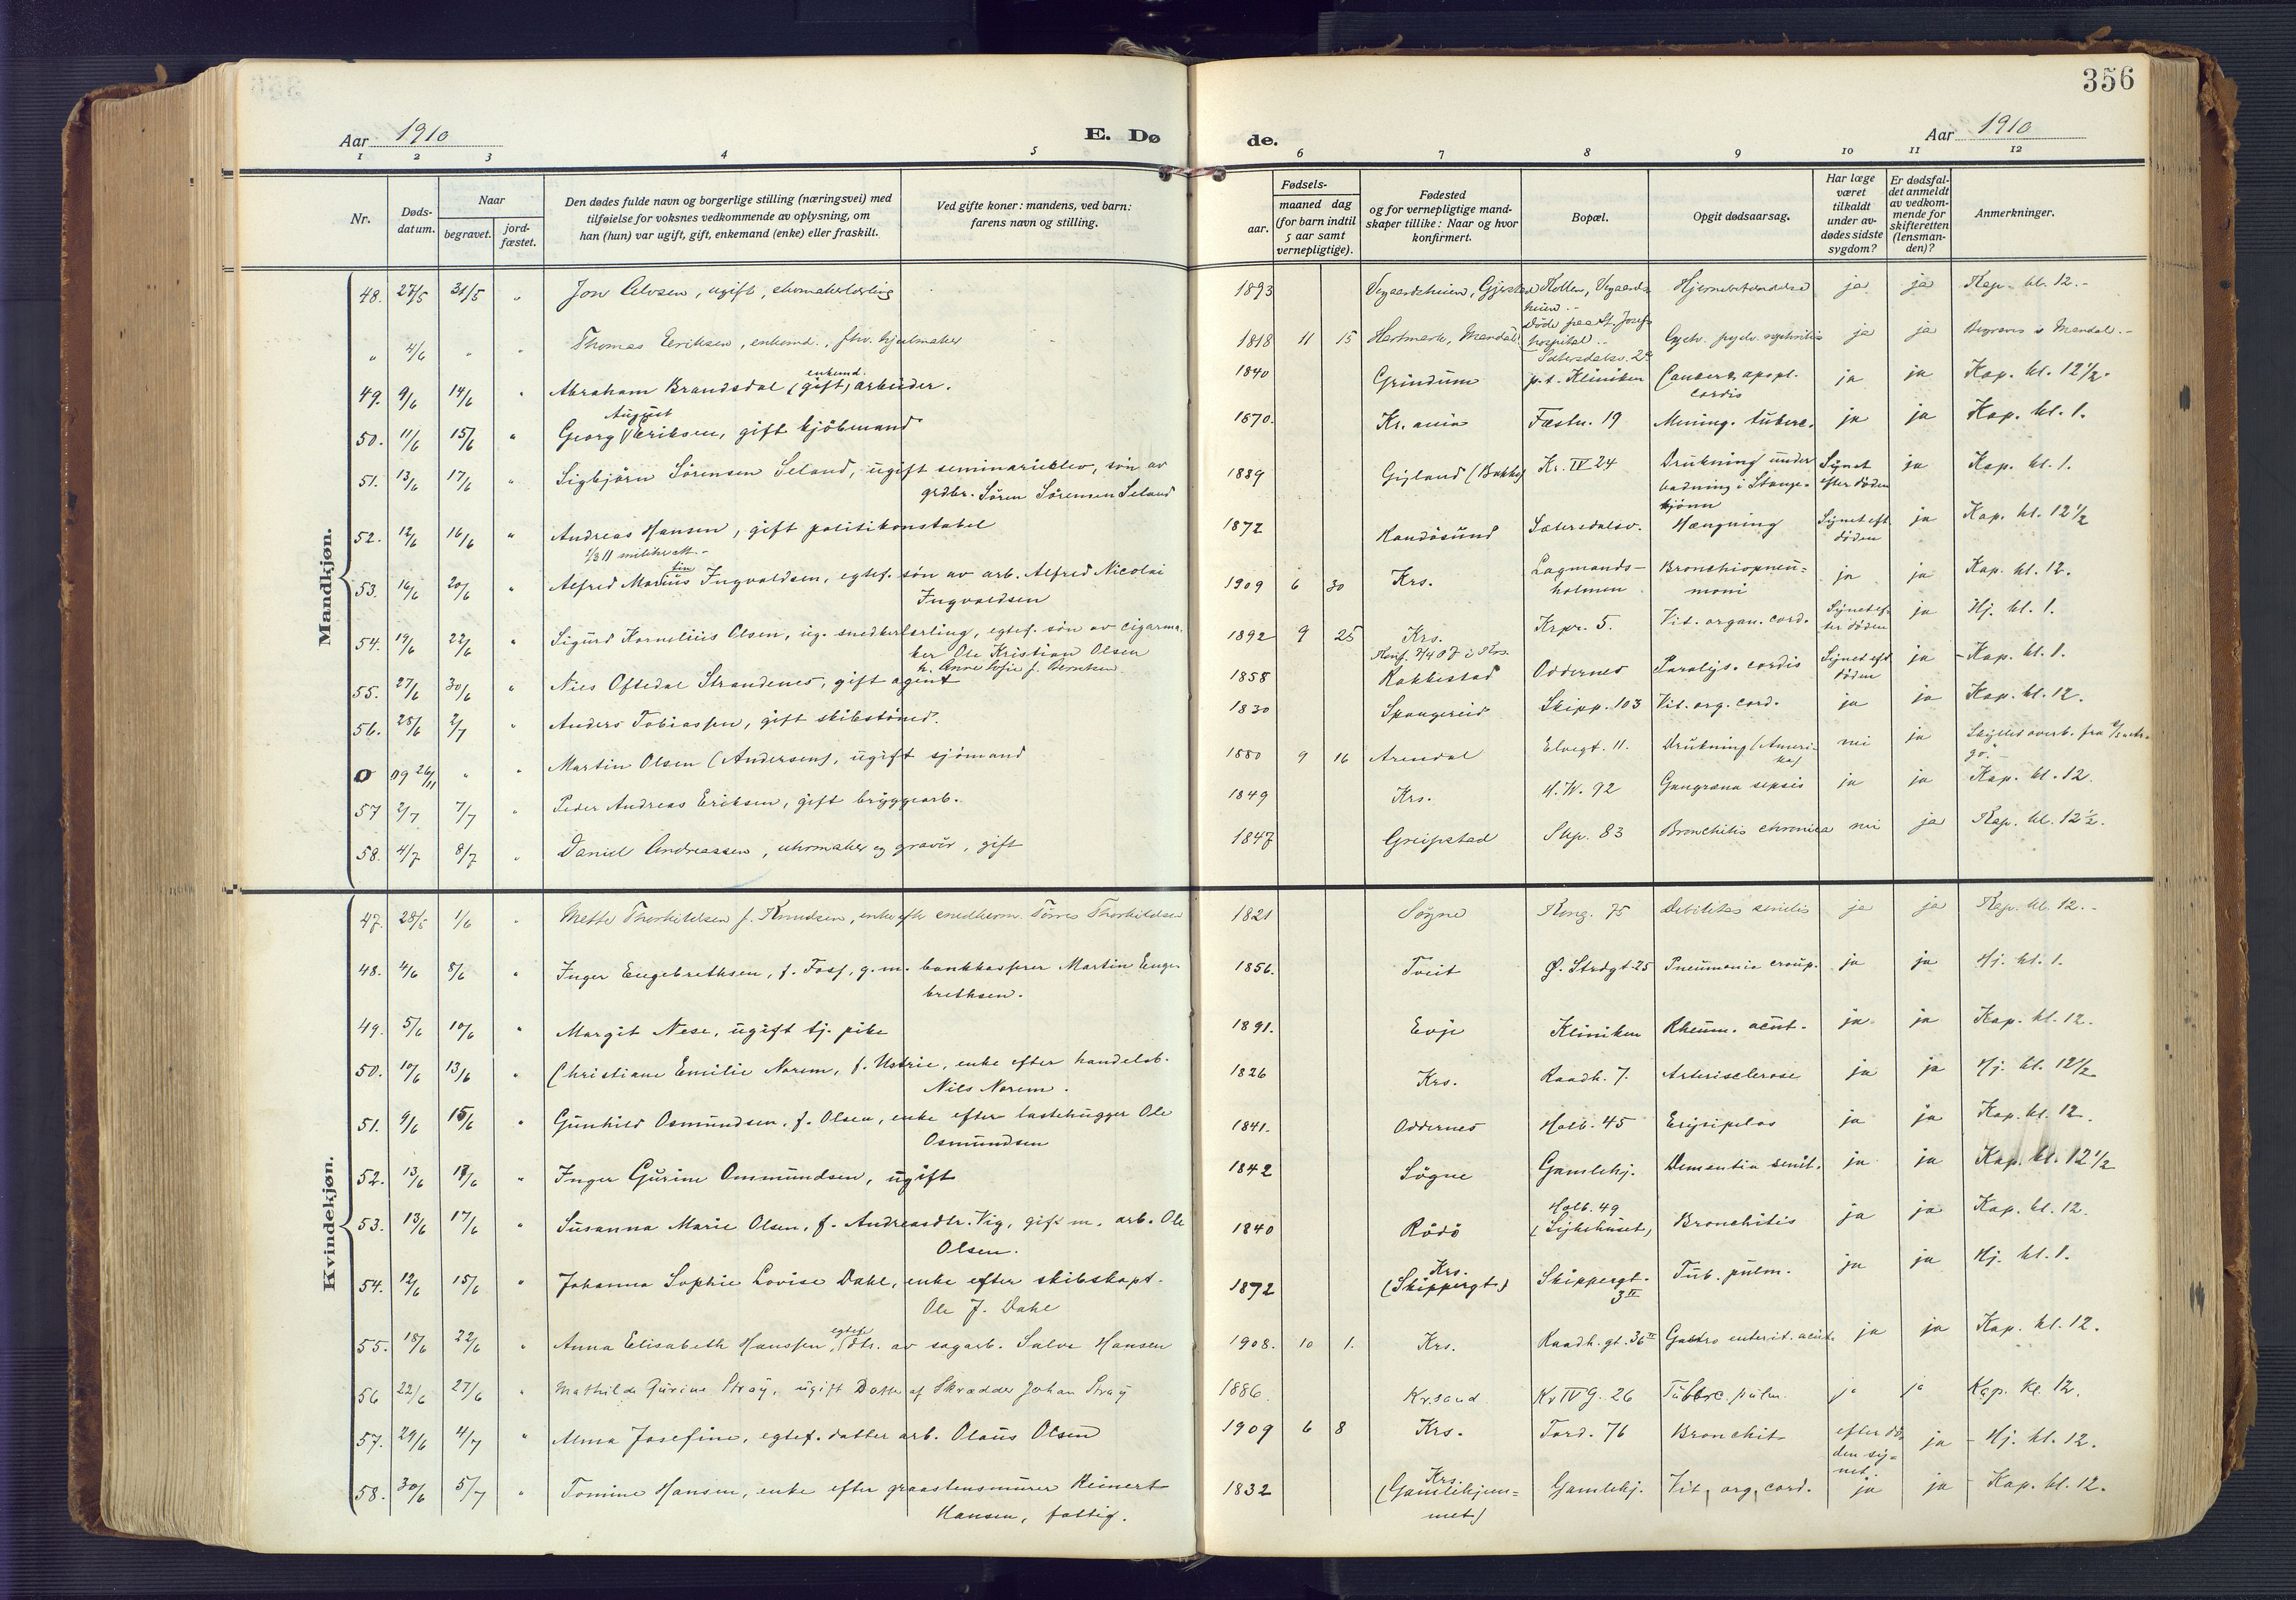 356
Aar 1910 E. Dø de. Aar 1910
1 2 3 4 5 6 7 8 9 10 11 12
Nr. Døds-datum. Naar begravet. jord-fæstet. Den dødes fulde navn og borgerlige stilling (næringsvei) med tilføielse for voksnes vedkommende av oplysning, om han (hun) var ugift, gift, enkemand (enke) eller fraskilt. Ved gifte koner: mandens, ved barn: farens navn og stilling. Fødsels- aar. maaned dag (for barn indtil 5 aar samt vernepligtige). Fødested og for vernepligtige mand-skaper tillike: Naar og hvor konfirmert. Bopæl. Opgit dødsaarsag. Har læge været tilkaldt under av-dødes sidste sygdom? Er dødsfal-det anmeldt av vedkom-mende for skifteretten (lensman-den)? Anmerkninger.
Mandkjøn.
48. 27/5 31/5 " Jon Olvsen, ugift, skomakerlærling 1893 Vegaardsheien, Gjerstad Kollen, Vegaards-heien.- ja ja Kap. kl. 12.-
" 4/6 " " Thomas Eriksen, enkemd., fhv. hjulmaker 1818 11 15 Hartmark, Mandal. Døde paa St. Josefs hospital.. ja ja Begraves i Mandal.-
49. 9/6 14/6 " Abraham Brandsdal (gift) enkemd. arbeider. 1840 Grindum Sætersdalsv. 2a p.t. Kliniken Cancer & apopl. cordis ja ja Kap. kl. 12 1/2.
50. 11/6 15/6 " Georg August Eriksen, gift kjöbmand 1870. Kr.ania Fæstn. 19 Mening. tuberc. ja ja Kap. kl. 1.
51. 13/6 17/6 " Sigbjörn Sörensen Seland, ugift seminarieelev, sön av grdbr. Sören Sörensen Seland 1889 Gyland (Bakke) Kr. IV 24 Drukning under badning i Stangekjönn Synet efter döden ja Kap. kl. 1.
52. 12/6 16/6 " Andreas Hansen, gift politikonstabel 1872 Randösund Sætersdalsv. Hængning Synet eft. döden ja Kap. kl. 12 1/2
53. 16/6 20/6 " Alfred Marius Ingvaldsen, egtef. sön av arb. Alfred Nicolai Ingvaldsen 1909 6 30 Krs. Lagmandsholmen Bronchiopneumoni ja ja Kap. kl. 12.
54. 19/6 22/6 " Sigurd Kornelius Olsen, ug. snedkerlærling, egtef. sön av cigarmaker Ole Kristian Olsen h. Anne Sofie f. Berntsen 1892 9 25 Krs. Konf. 7/4 07 i Krs. Krpr. 5. Vit. organ. cord. Synet efter döden ja Hj. kl. 1.
55. 27/6 30/6 " Nils Oftedal Strandenes, gift agent 1858 Rakkestad Oddernes Paralys. cordis Synet eft döden ja - Kap. kl. 1.
56. 28/6 2/7 " Anders Tobiassen, gift skibstömd. 1830 Spangereid Skipp. 103 Vit. org. cord. ja ja Kap. kl. 12.
0 09 26/11 " " Martin Olsen (Andersen), ugift sjömand 1880 9 16 Arendal Elvegt. 11. Drukning (Amerika) nei ja
57 2/7 7/7 " Peder Andreas Eriksen, gift bryggearb. 1849 Krs. H. W. 92 Gangræna sepsis ja ja Kap. kl. 12.
58. 4/7 8/7 " Daniel Andreassen, uhrmaker og gravör, gift 1847 Greipstad Skp. 83 Bronchitis chronica nei ja Kap. kl. 12 1/2.
Kvindekjøn.
47. 28/5 1/6 " Mette Thorkildsen f. Knudsen, enke eft. snedkerm. Tørres Thorkildsen 1821 Søgne Kong. 75 Debilitas senilis ja ja Kap. kl. 12.-
48. 4/6 8/6 " Inger Engebrethsen, f. Foss, g. m. bankkasserer Martin Engebrethsen. 1856. Tveit Ø. Strdgt. 25 Pneumonia croup. ja ja Hj. kl. 1.
49. 5/6 10/6 " Margit Nese, ugift tj. pike 1891. Evje Kliniken Rheum. acut. ja ja Kap. kl. 12.
50. 10/6 13/6 " Christiane Emilie Norem, f. Ustrie, enke efter handelsb. Nils Norem. 1826 Krs. Raadh. 7. Arteriosclerose ja ja Hj. kl. 12 1/2
51. 9/6 15/6 " Gunhild Osmundsen, f. Olsen, enke efter lastehugger Ole Osmundsen 1841. Oddernes Holb. 45 Erysipelas ja ja Kap. kl. 12
52. 13/6 18/6 " Inger Gurine Ommundsen, ugift 1842 Sögne Gamlehj. Dementia senil. ja ja Kap. kl. 12 1/2
53. 13/6 17/6 " Susanna Marie Olsen, f. Andreasdtr. Vig, gift m. arb. Ole Olsen. 1840 Rödö Holb. 49 (Sykehuset) Bronchitis ja ja Kap. kl. 12.
54. 12/6 15/6 " Johanna Sophie Lovise Dahl, enke efter skibskapt. Ole J. Dahl 1872 Krs. (Skippergt.) Skippergt. 3 II Tub. pulm. ja ja Hj. kl. 1.
55. 18/6 22/6 " Anna Elisabeth Hanssen, egtef. dtr. av sagarb. Salve Hansen 1908. 10 1. Krs. Raadh. gt. 36 II Gastro enterit. acut. ja ja Kap. kl. 12.
56 22/6 27/6 " Mathilde Gurine Stray, ugift Datter af Skrædder Johan Stray 1886 Kr.sand Kv IV G. 26 Tuberc. pulm. ja ja Kap. Kl. 12.
57. 29/6 4/7 " Alma Josefine, egtef. datter arb. Olaus Olsen 1909 6 8 Krs. Tord. 76 Bronchit efter döden synet. ja - Hj. kl. 12.
58. 30/6 5/7 " Tomine Hansen, enke efter graastensmurer Reinert Hansen, fattig. 1832 Krs. (Gamlehjemmet) Gamlehj. Vit. org. cord. ja ja - Kap. kl. 12.